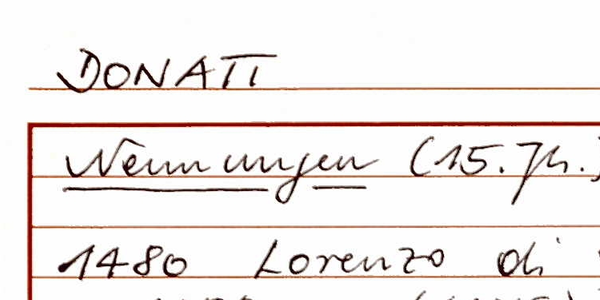 DONATI
Nennungen (15. Jh.)
1480 Lorenzo di